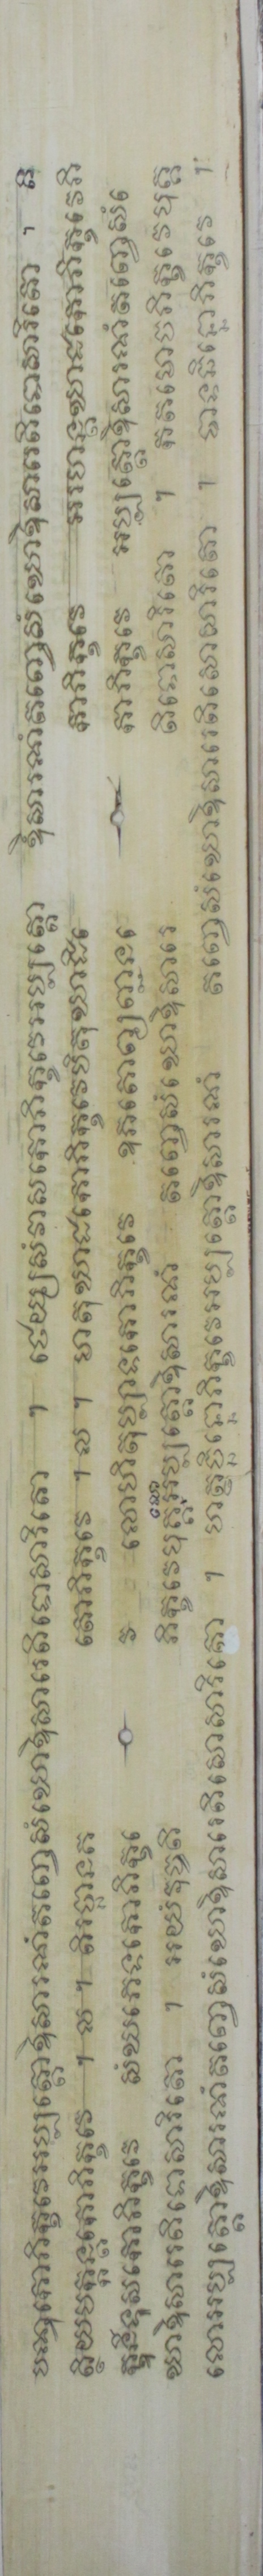 បណ្ឌកោភិក្ខវេអប្បត្តោឱសារណំតញ្ចេសំឃោឱសារេតិទោសារិតោ ។ ថេយ្យសំវាសកោភិក្ខវេអប្បត្តោ ឱសារណំតញ្ចេសំឃោឱសារេតិទោសារិតោ ។ តិ
ត្ថិយបក្កន្តកោភិក្ខវេ ។ ល ។ តិរច្ឆានគ តោភិក្ខវេ ។ ល ។ មាតុឃាដកោភិក្ខវេបិតុឃាដកេ កាភិក្ខវេ អរហន្តឃាដកោភិក្ខវេភិ
ក្ខុនីទុសកោភិក្ខវេ សំឃភេទកោភិក្ខេ វ លោហិតុប្បាទកោភិក្ខវេ ឧភតោព្យញ្ជនេ កាភិក្ខវេ អប្បត្តោឱសារណំតញ្ចេសំេ
ឃាឱសារេតិទោសារិតោ ។ អយំវុច្ចតិ ភិក្ខវេបុគ្គលោអប្បត្តោឱសារណំ តញ្ចេសំឃោឱសារេ តិទោសារិតោ ។ កតមោចភិក្ខវេបុគ្គ
លោអប្បត្តោឱសារណំតញ្ចេសំឃោឱសារេតិសោសារិតោ ។ ហត្ថច្ឆិន្នោភិក្ខវេអប្បត្តោឱសារណំ តញ្ចេសំឃោឱសារេតិសោសារិតោ ។ បាទច្ឆិន្នោភិក្ខវេ ។